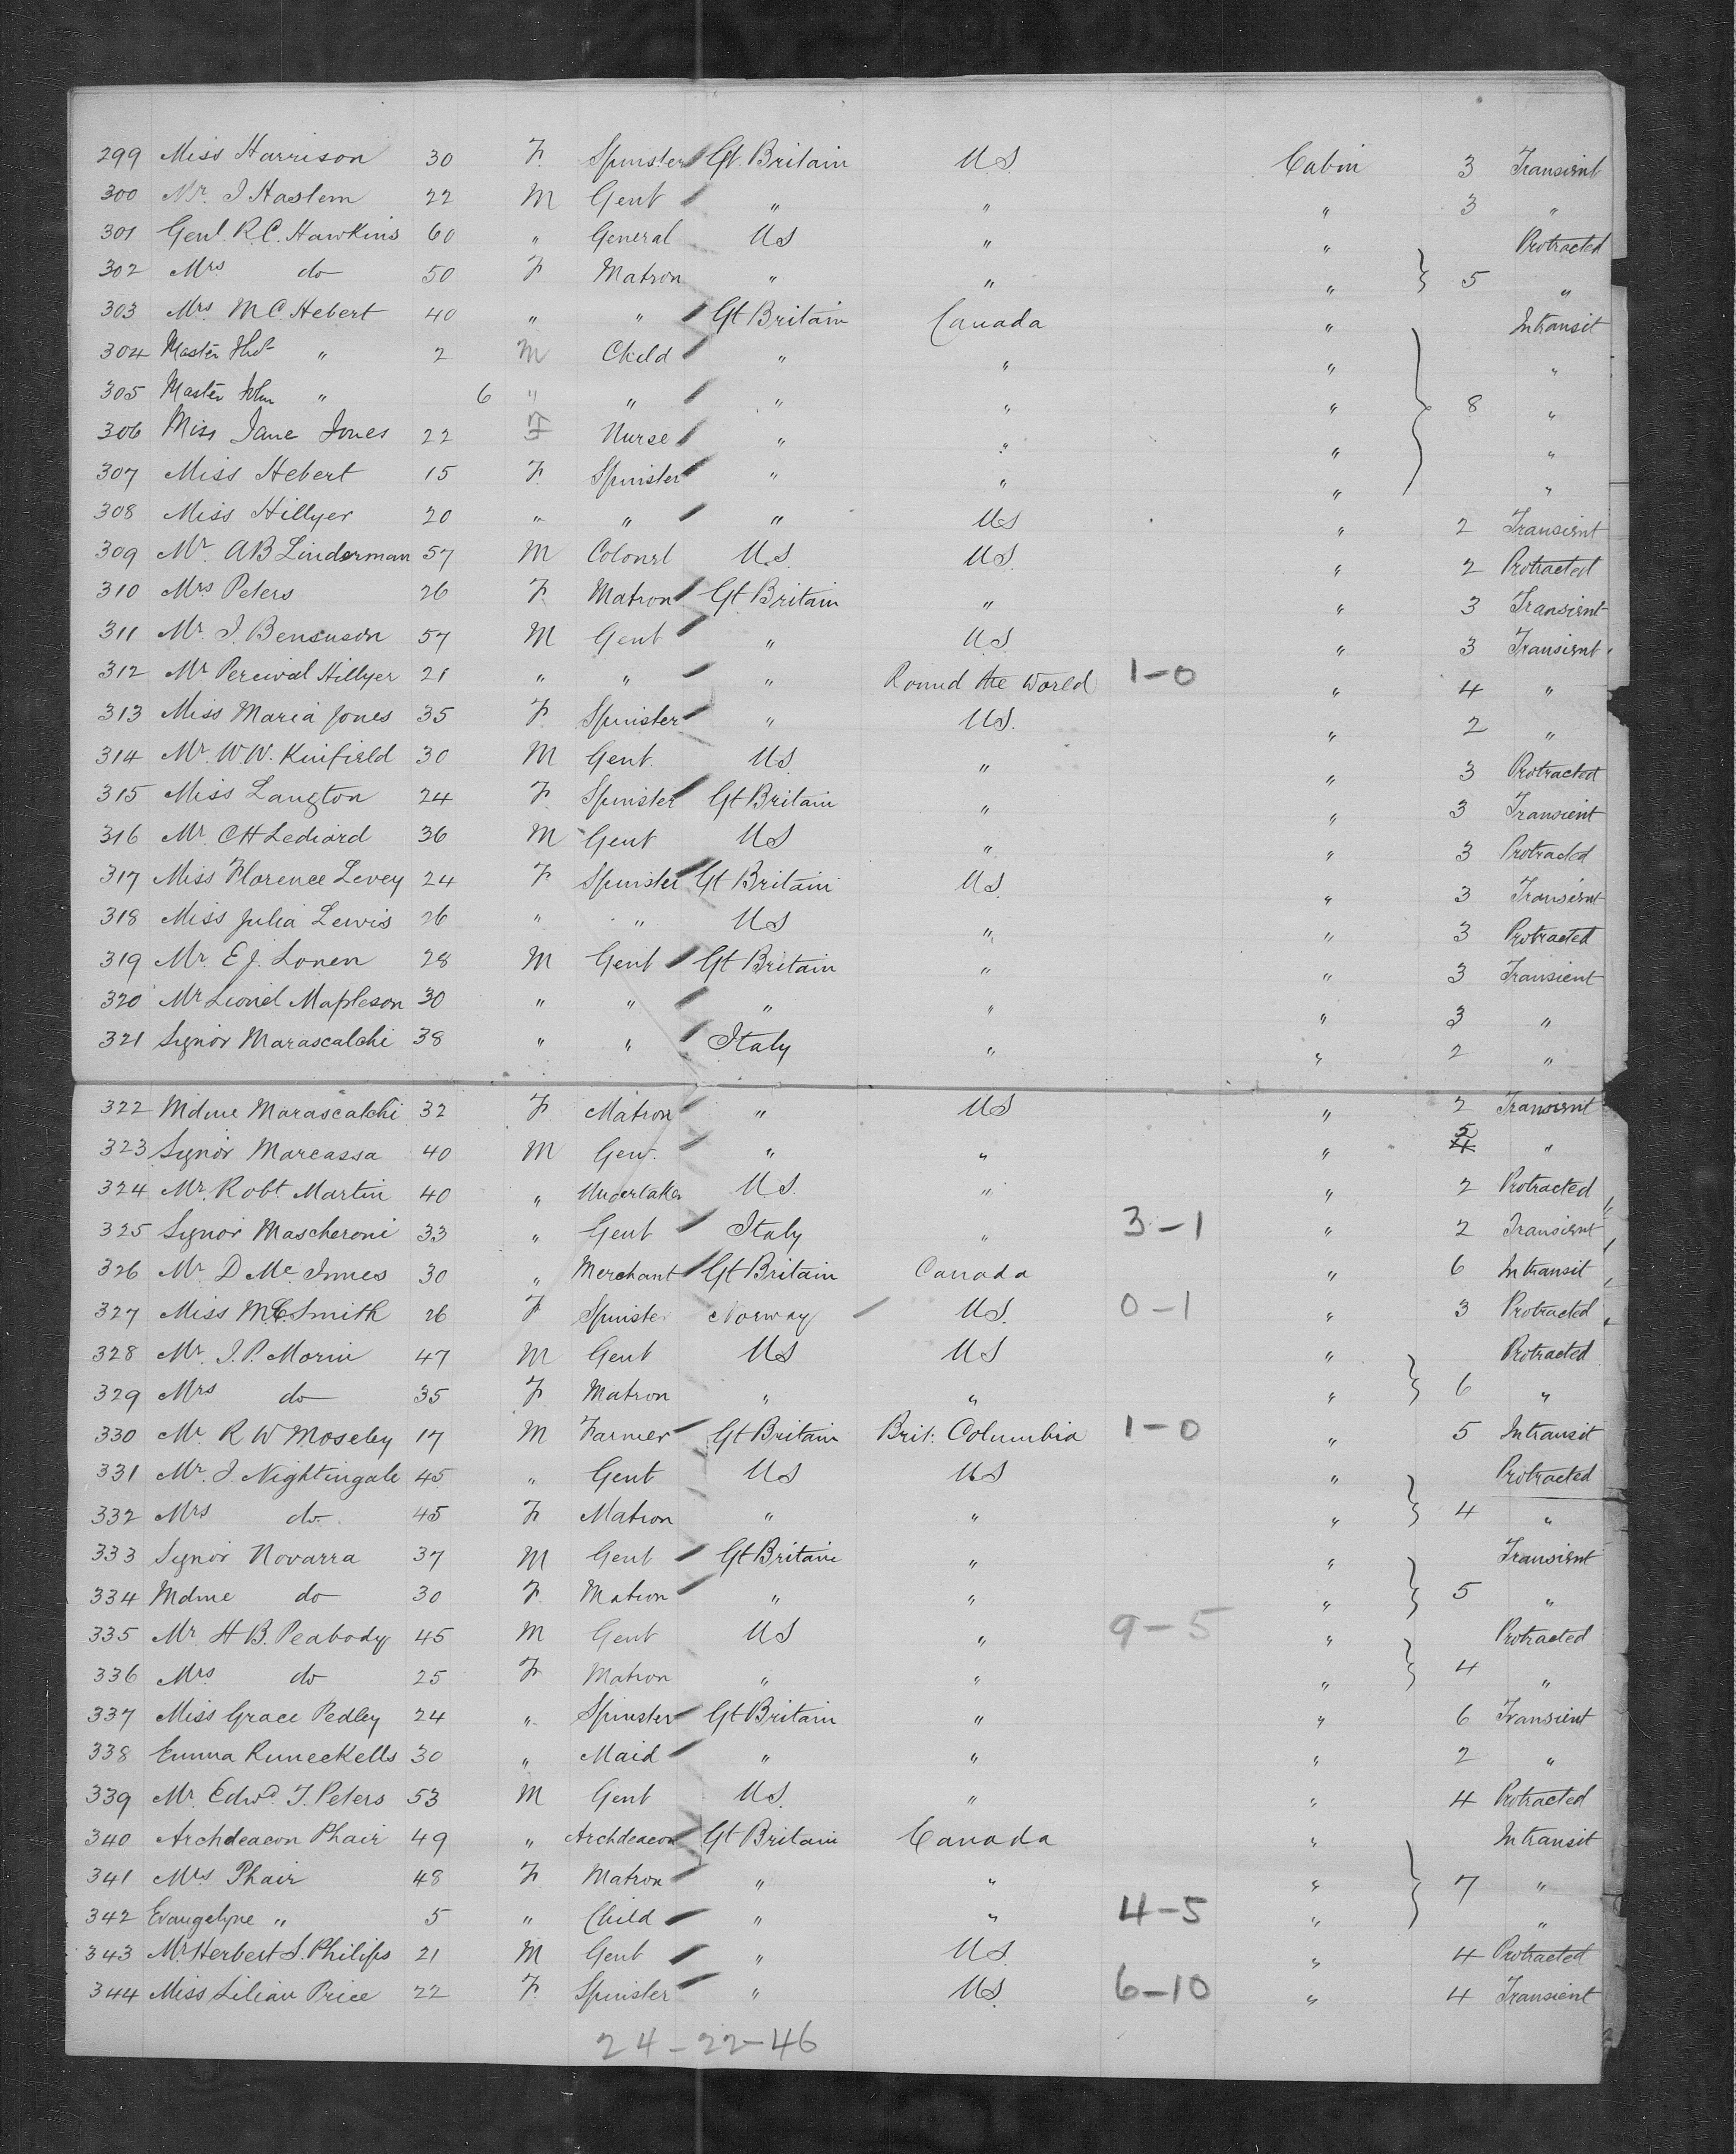 299 Miss Harrison 30 F. Spinster Gt. Britain U.S. Cabin 3 Transient
300 Mr. J Haslem 22 M Gent " " " 3 "
301 Genl. R.C. Hawkins 60 " General US " " Protracted
302 Mrs do 50 F Matron " " " 5 "
303 Mrs. M.C. Hebert 40 " " Gt Britain Canada " Intransit
304 Master Thos " 2 M Child " " " "
305 Master John " 6 " " " " " 8 "
306 Miss Jane Jones 22 F Nurse " " " "
307 Miss Hebert 15 F. Spinster " " " "
308 Miss Hillyer 20 " " " US " 2 Transient
309 Mr. AB Linderman 57 M Colonel U.S. US. " 2 Protracted
310 Mrs Peters 26 F. Matron Gt Britain " " 3 Transient
311 Mr. J. Bensuson 57 M Gent " U.S. " 3 Transient
312 Mr Percival Hillyer 21 " " " Round the World 1-0 " 4 "
313 Miss Maria Jones 35 F. Spinster " US. " 2 "
314 Mr. W.W. Kinfield 30 M Gent. US " " 3 Protracted
315 Miss Langton 24 F. Spinster Gt Britain " " 3 Transient
316 Mr. CH Lediard 36 M Gent US " " 3 Protracted
317 Miss Florence Levey 24 F Spinster Gt Britain US. " 3 Transient
318 Miss Julia Lewis 26 " " US " " 3 Protracted
319 Mr. E.J. Lonen 28 M Gent Gt Britain " " 3 Transient
320 Mr Lionel Mapleson 30 " " " " " 3 "
321 Signor Marascalchi 38 " " Italy " " 2 "
322 Mdme Marascalchi 32 F. Matron " US " 2 Transient
323 Signor Marcassa 40 M Gent. " " " 5 "
324 Mr. Robt Martin 40 " Undertaker U.S. " " 2 Protracted
325 Signor Mascheroni 33 " Gent Italy " 3-1 " 2 Transient
326 Mr D Mc. Innes 30 " Merchant Gt Britain Canada " 6 Intransit
327 Miss M.C. Smith 26 F Spinster Norway U.S. 0-1 " 3 Protracted
328 Mr. J.P. Morin 47 M Gent US US " Protracted
329 Mrs do 35 F. Matron " " " 6 "
330 Mr. R W Moseley 17 M Farmer Gt Britain Brit. Columbia 1-0 " 5 Intransit
331 Mr. J. Nightingale 45 " Gent US US " Protracted
332 Mrs do. 45 F. Matron " " " 4 "
333 Signor Novarra 37 M Gent Gt Britain " " Transient
334 Mdme do 30 F. Matron " " " 5 "
335 Mr. H B. Peabody 45 M Gent US " 9-5 " Protracted
336 Mrs. do 25 F. Matron " " " 4 "
337 Miss Grace Pedley 24 " Spinster Gt Britain " " 6 Transient
338 Emma Runeckells 30 " Maid " " " 2 "
339 Mr. Edwd. T. Peters 53 M Gent US. " " 4 Protracted
340 Archdeacon Phair 49 " Archdeacon Gt Britain Canada " Intransit
341 Mrs Phair 48 F. Matron " " " 7 "
342 Evangelyne " 5 " Child " " 4-5 " "
343 Mr Herbert S. Philips 21 M Gent " US. " 4 Protracted
344 Miss Lilian Price 22 F. Spinster " US. 6-10 " 4 Transient
24-22-46